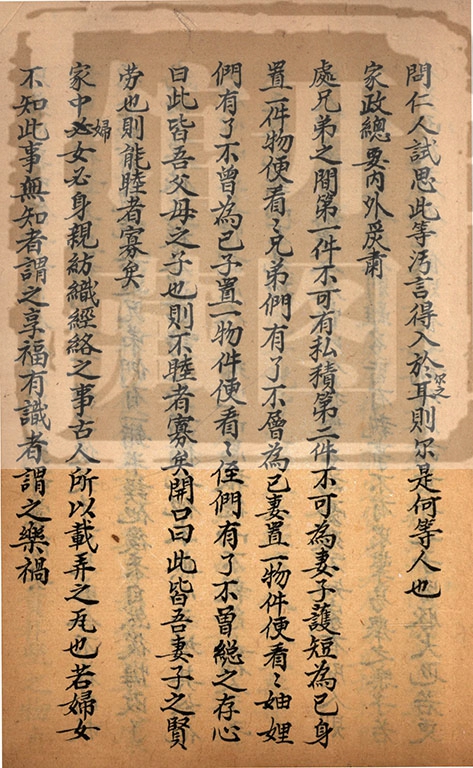 問仁人試思此等污言得入於尔之耳則尔是何等人也
家政總要內外嚴肅
處兄弟之間第一件不可有私積第二件不可為妻子護短為己身
置一件物便看〻兄弟們有了不曾為己妻置一物件便看〻妯娌
們有了不曾為己子置一物件便看〻侄們有了不曾總之存心
曰此皆吾父母之子也則不睦者寡矣開口曰此皆吾妻子之賢
勞也則能睦者寡矣
家中婦女必身親紡織經絡之事古人所以載弄之瓦也若婦女
不知此事無知者謂之享福有識者謂之樂禍